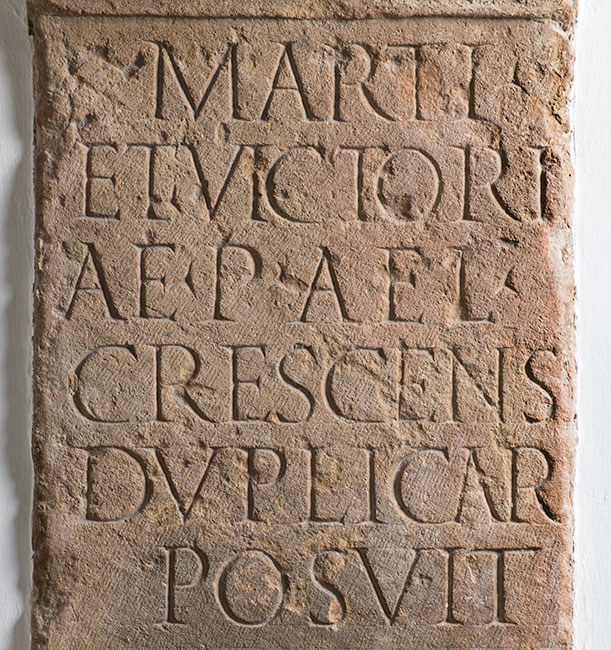 MARTI·
ET·VICTORI
AE·P·AEL·
CRESCENS
DVPLICAR
POSVIT